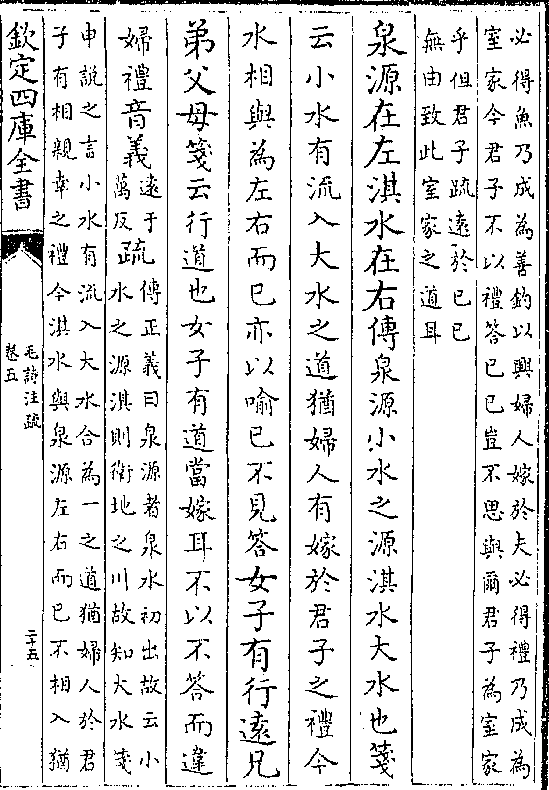 必得魚乃成為善釣以興婦人嫁於夫必得禮乃成為
室家今君子不以禮答已已豈不思與爾君子為室家
乎但君子疏遠於已已
無由致此室家之道耳
泉源在左淇水在右傳泉源小水之源淇水大水也箋
云小水有流入大水之道猶婦人有嫁於君子之禮今
水相與為左右而已亦以喻已不見答女子有行遠兄
弟父母箋云行道也女子有道當嫁耳不以不答而違
婦禮音義
遠于
萬反
疏
傳正義曰泉源者泉水初出故云小
水之源淇則衛地之川故知大水箋
申說之言小水有流入大水合為一之道猶婦人於君
子有相親幸之禮今淇水與泉源左右而已不相入猶
欽定四庫全書
毛詩注疏
卷五
二十五